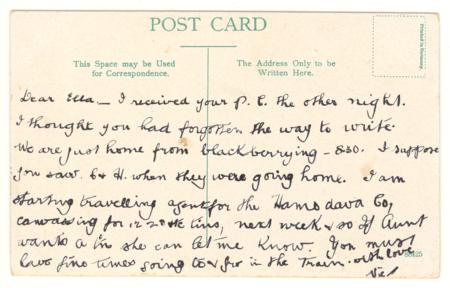 POST CARD
This Space may be Used
for Correspondence.
The Address Only to be
Written Here.
Printed in Germany.
Dear Ella — I received your P. C. the other night.
I thought you had forgotten the way to write.
We are just home from blackberrying – 8.30. I suppose
you saw & H. when they were going home. I am
starting travelling agent for the Hamodava Co,
canvassing for tins, next week & so if Aunt
wants a tin she can let me know. You must
have fine times going to & fro in the Train. with love